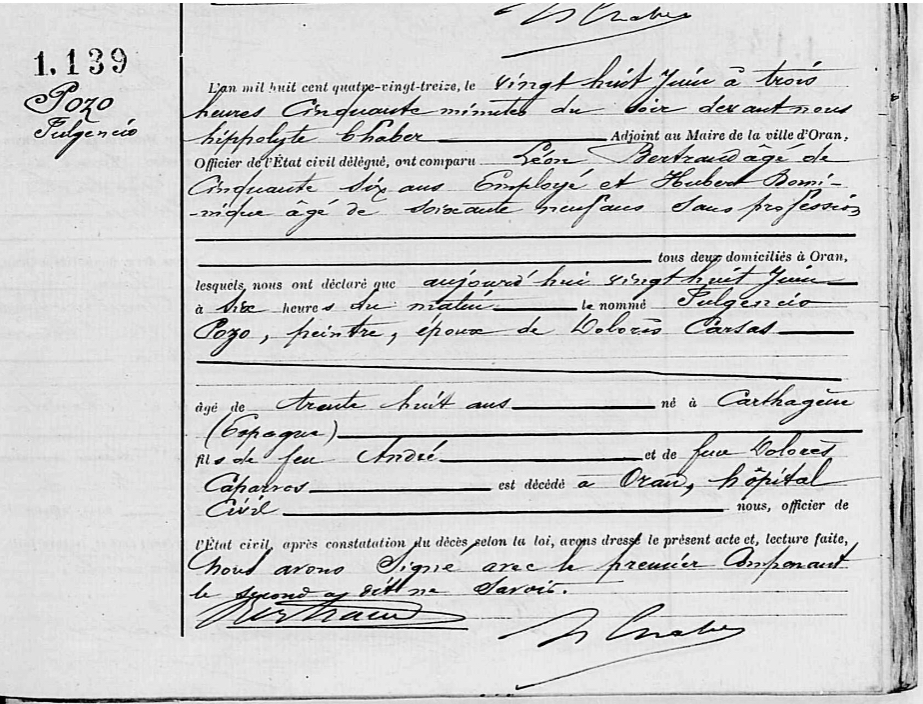 h Chaber
1.139
Pozo
Fulgencio
L'an mil huit cent quatre-vingt-treize, le vingt huit Juin à trois
heures Cinquante minutes du soir devant nous
hippolyte Chaber Adjoint au Maire de la ville d'Oran,
Officier de l'État civil délégué, ont comparu Léon Bertrand âgé de
Cinquante six ans Employé et Hubert Domi-
-nique âgé de soixante neuf ans Sans profession
tous deux domiciliés à Oran,
lesquels nous ont déclaré que aujourd'hui vingt huit Juin
à six heures du matin le nommé Fulgencio
Pozo, peintre, époux de Dolorès Carsas
âgé de trente huit ans né à Carthagène
(Espagne)
fils de feu André et de feue Dolorès
Caparros est décédé à Oran, hôpital
Civil nous, officier de
l'État civil, après constatation du décès selon la loi, avons dressé le présent acte et, lecture faite,
nous avons Signé avec le premier Comparant
le second a dit ne Savoir.
Bertrand
h Chaber